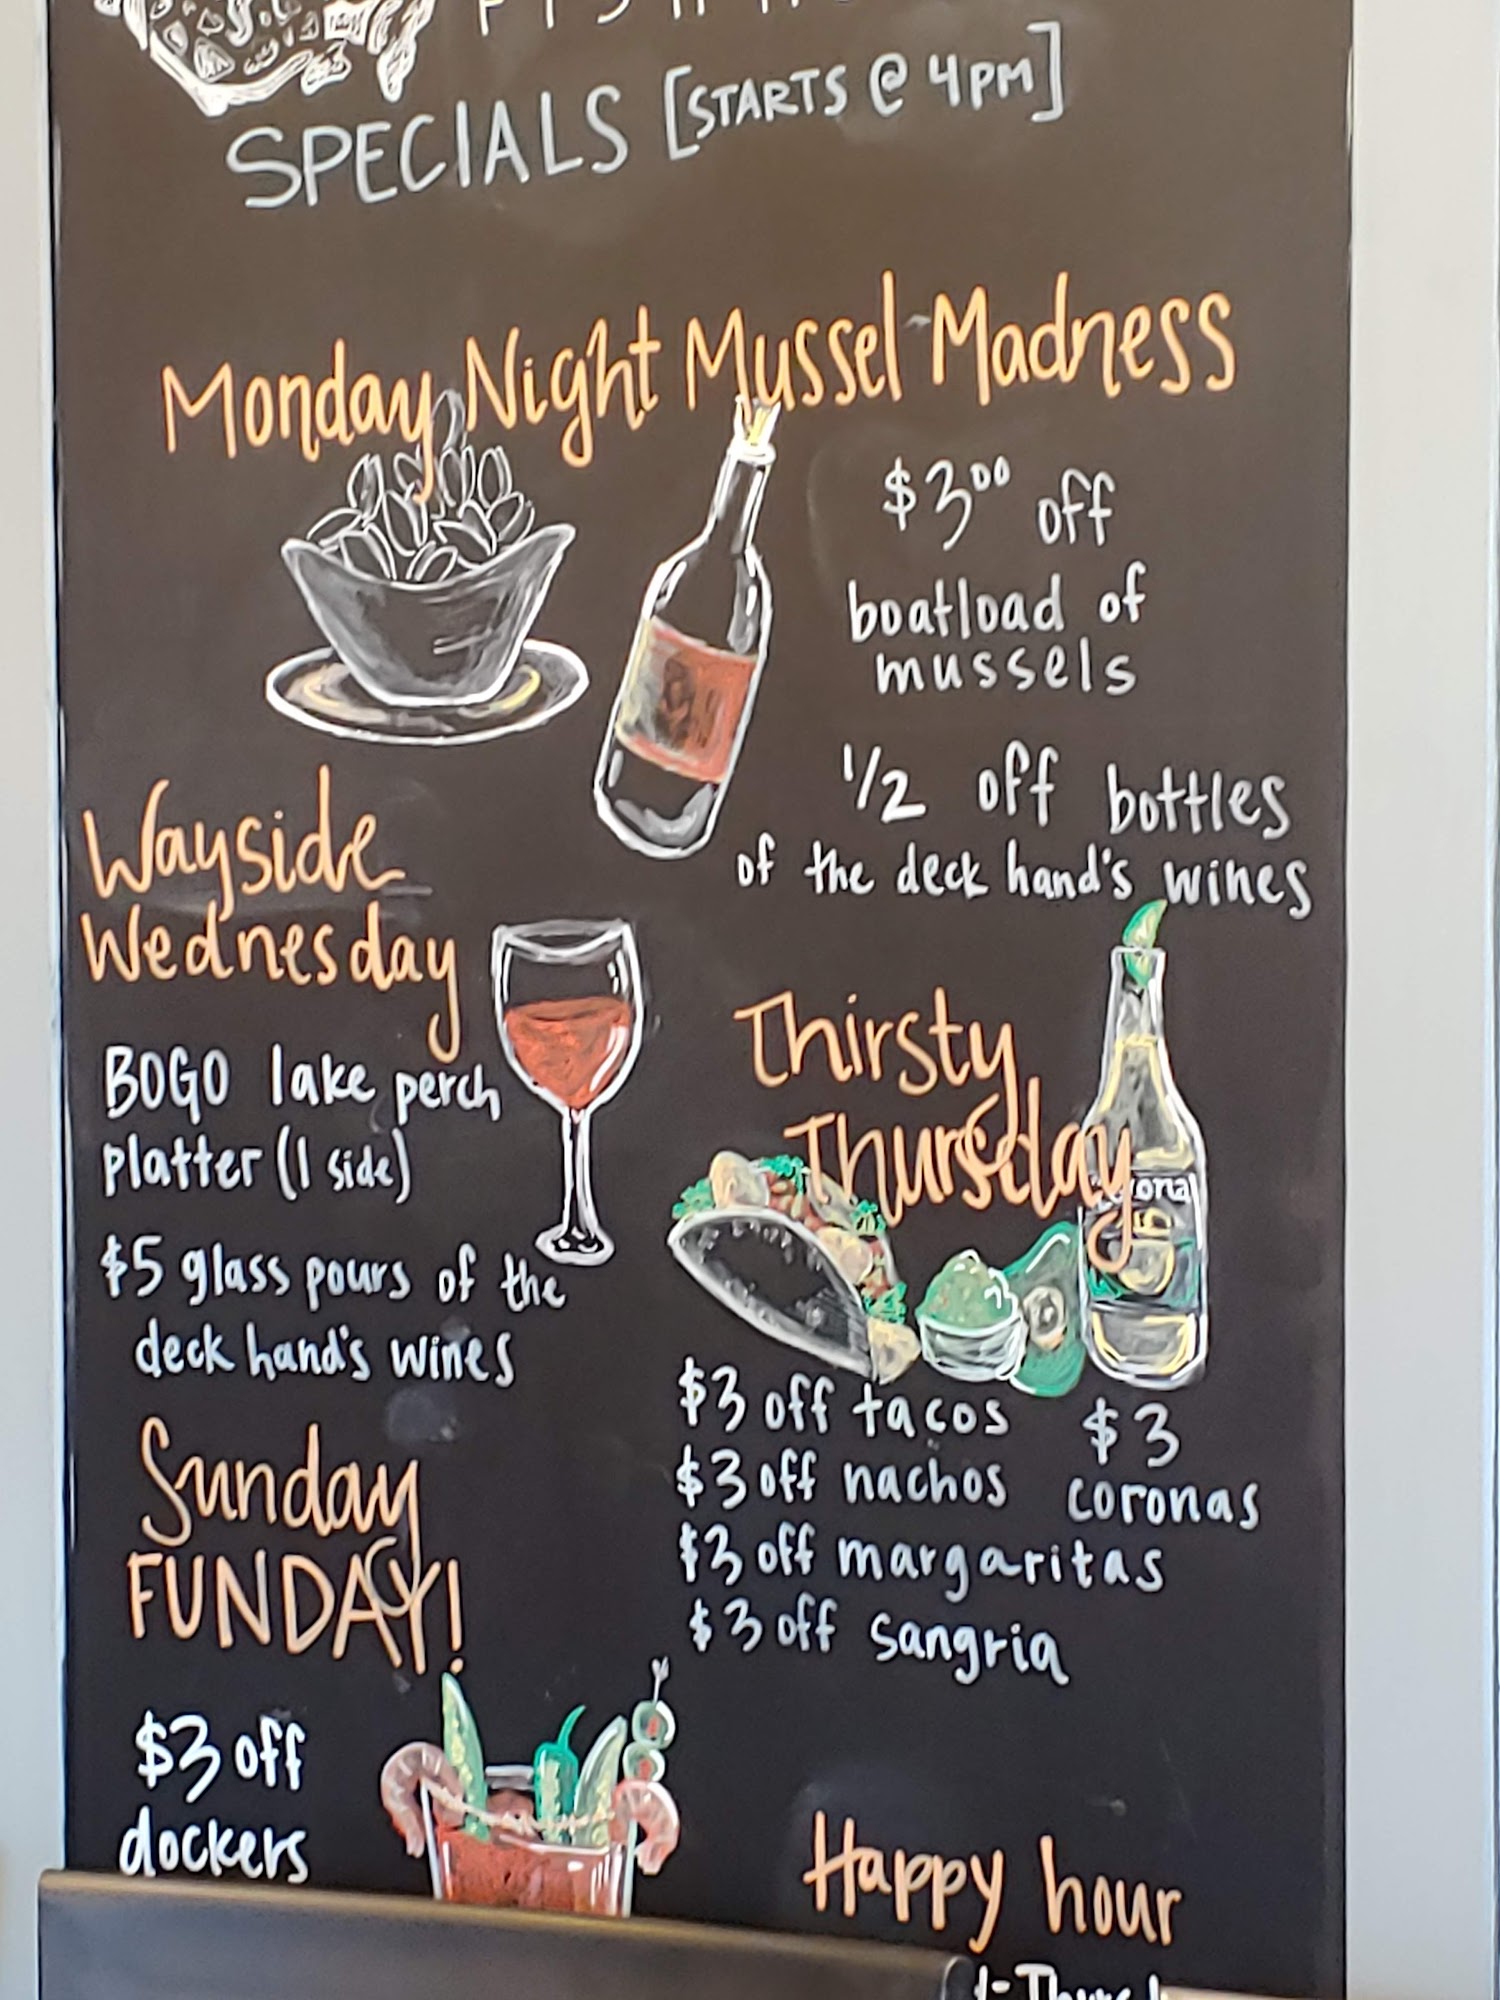 SPECIALS [STARTS @ 4PM]
Monday Night Mussel Madness
$3.00 off
boatload of
mussels
1/2 off bottles
of the deck hand's wines
Wayside
Wednesday
BOGO lake perch
platter (1 side)
$5 glass pours of the
deck hand's wines
Thirsty
Thursday
$3 off tacos
$3 off nachos
$3 off margaritas
$3 off sangria
$3
coronas
Sunday
FUNDAY!
$3 off
dockers
Happy hour